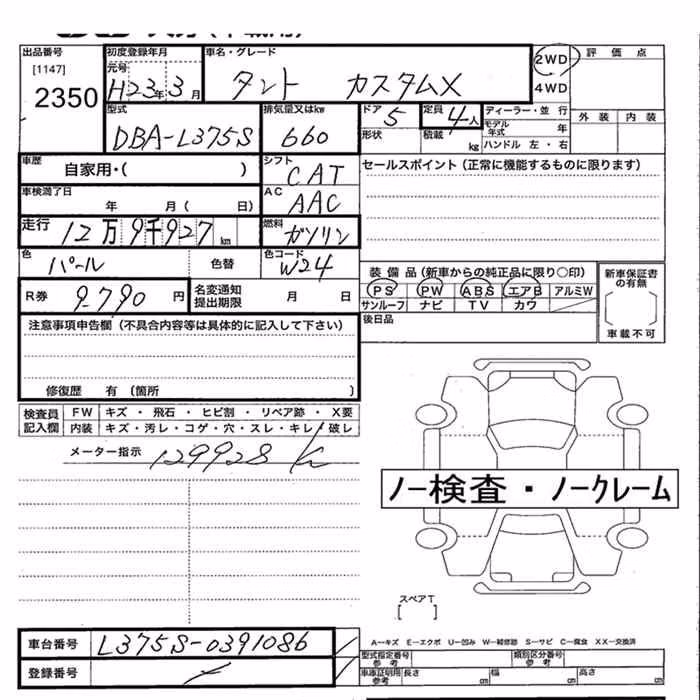 出品番号
[1147]
2350
初度登録年月
元号
H23年3月
車名・グレード
タント カスタムX
2WD
4WD
評価点
外装 内装
型式
DBA-L375S
排気量又はkw
660
ドア
5
形状
定員
4人
積載 kg
ディーラー・並行
モデル年式 年
ハンドル 左・右
車歴
自家用・( )
シフト
CAT
車検満了日
年 月( 日)
AC
AAC
セールスポイント(正常に機能するものに限ります)
走行
12万9千927km
燃料
ガソリン
色
パール
色替
色コード
W24
装備品(新車からの純正品に限り○印)
PS PW ABS エアB アルミW
サンルーフ ナビ TV カワ
新車保証書の有無
車載不可
R券
9790円
名変通知
提出期限
月 日
後日品
注意事項申告欄(不具合内容等は具体的に記入して下さい)
修復歴 有(箇所 )
検査員記入欄
FW キズ・飛石・ヒビ割・リペア跡・X要
内装 キズ・汚レ・コゲ・穴・スレ・キレ・破レ
メーター指示 129928 K
ノー検査・ノークレーム
スペアT
[ ]
車台番号
L375S-0391086
登録番号
A-キズ E-エクボ U-凹み W-補修跡 S-サビ C-腐食 XX-交換済
型式指定番号
参考
類別区分番号
参考
車庫証明用
参考
長さ cm 幅 cm 高さ cm